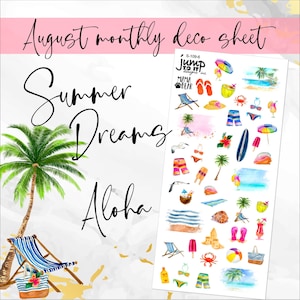 August monthly deco sheet
Summer
Dreams
Aloha
jump
TO IT!
MAMA
BEAR